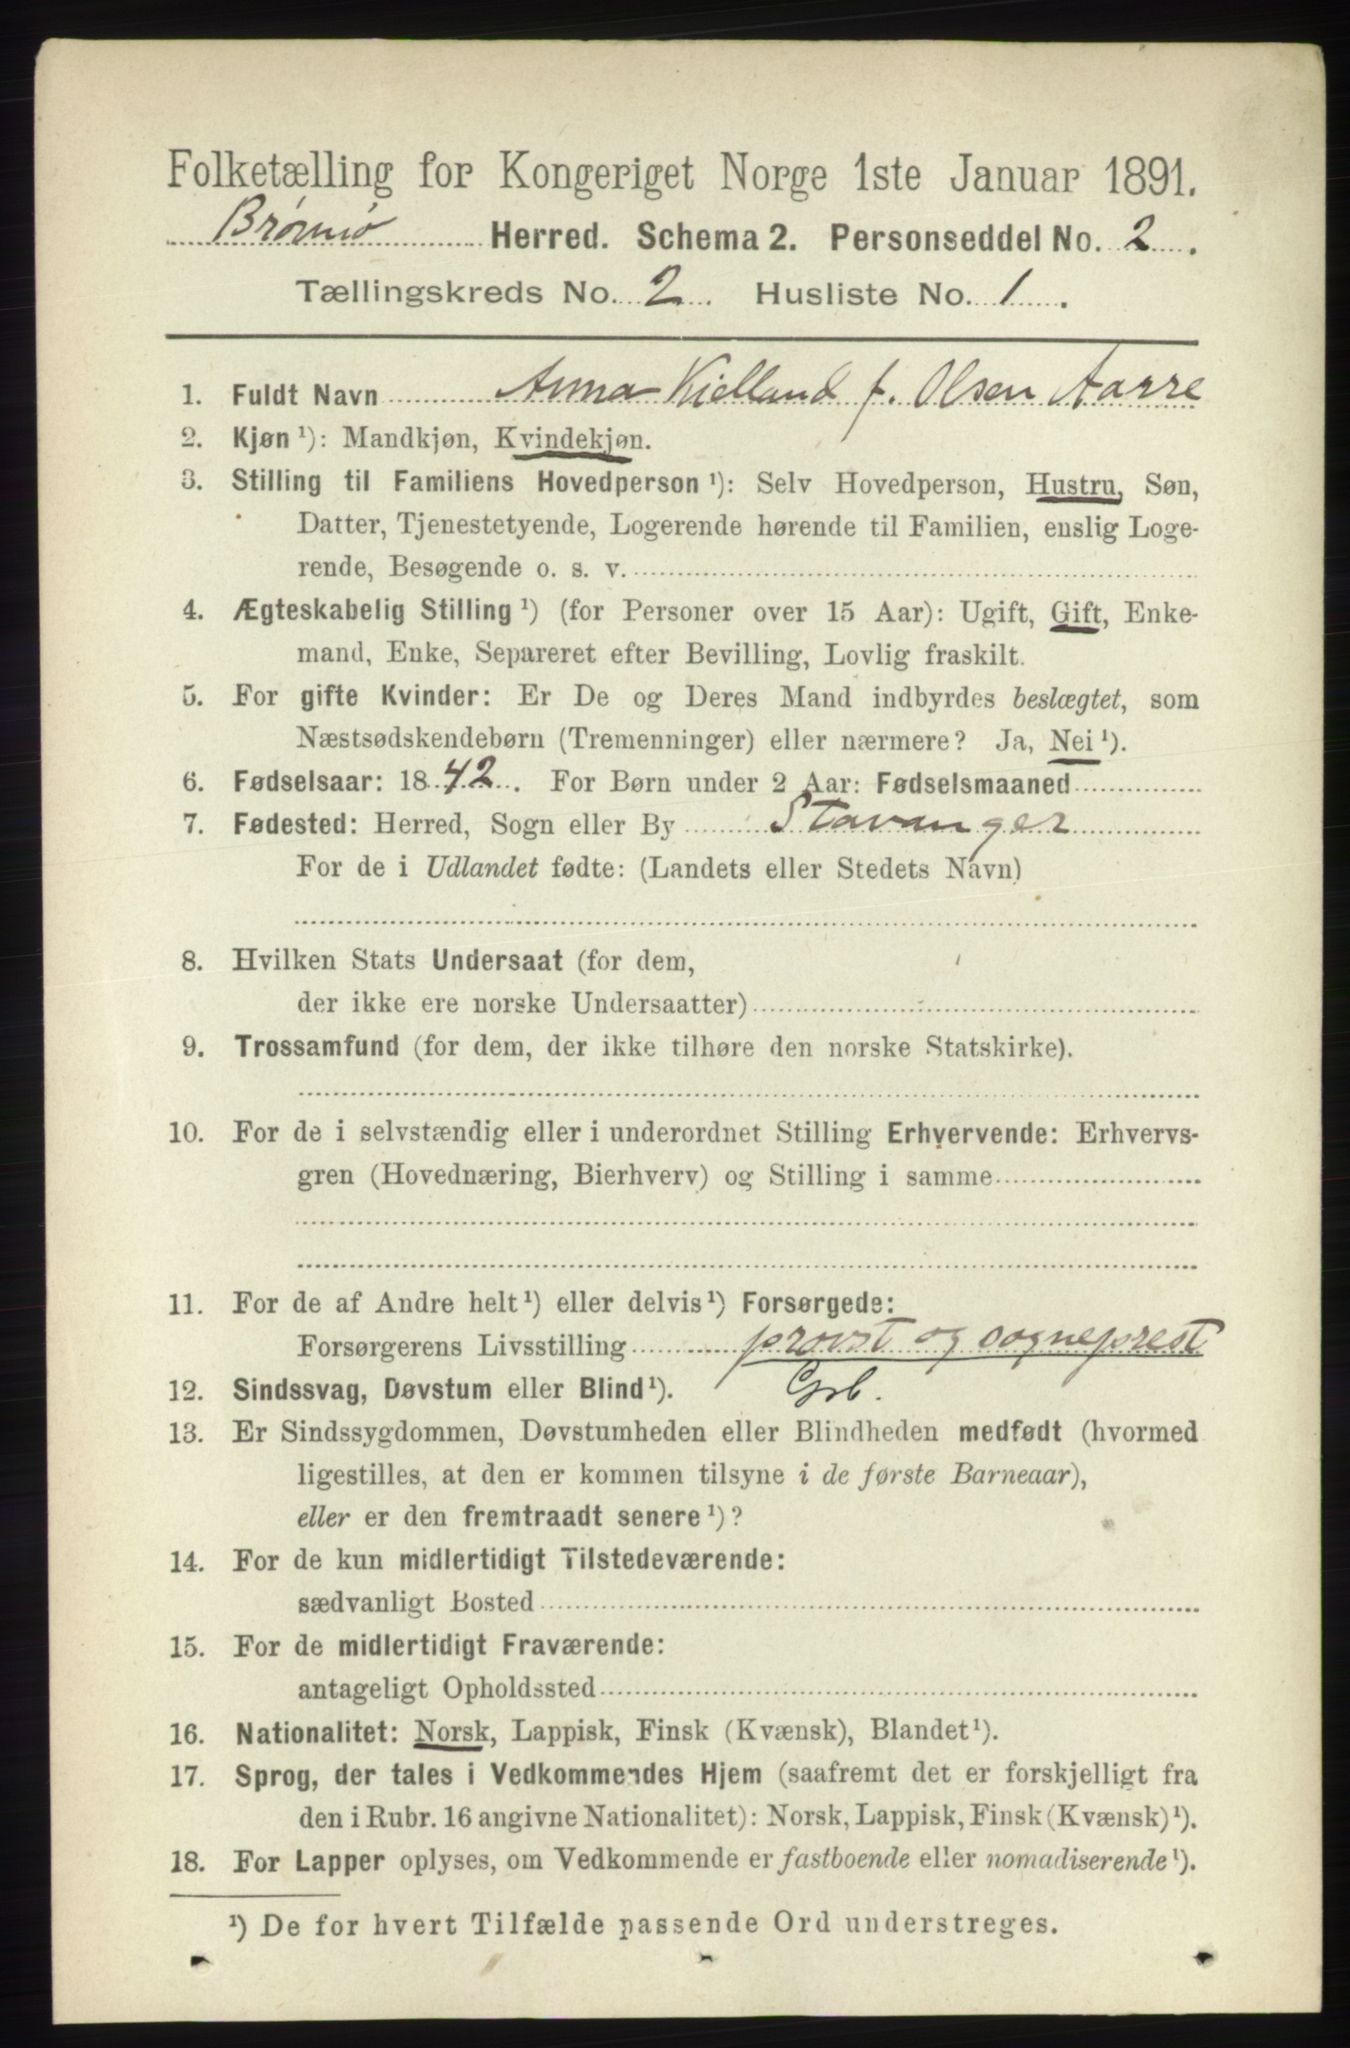 Folketælling for Kongeriget Norge 1ste Januar 1891.
Brønnø Herred. Schema 2. Personseddel No. 2.
Tællingskreds No. 2. Husliste No. 1.
1. Fuldt Navn Anna Kielland f. Olsen Aarre
2. Kjøn ¹): Mandkjøn, Kvindekjøn.
3. Stilling til Familiens Hovedperson ¹): Selv Hovedperson, Hustru, Søn,
Datter, Tjenestetyende, Logerende hørende til Familien, enslig Loge-
rende, Besøgende o. s. v.
4. Ægteskabelig Stilling ¹) (for Personer over 15 Aar): Ugift, Gift, Enke-
mand, Enke, Separeret efter Bevilling, Lovlig fraskilt.
5. For gifte Kvinder: Er De og Deres Mand indbyrdes beslægtet, som
Næstsødskendebørn (Tremenninger) eller nærmere? Ja, Nei ¹).
6. Fødselsaar: 1842. For Børn under 2 Aar: Fødselsmaaned
7. Fødested: Herred, Sogn eller By Stavanger
For de i Udlandet fødte: (Landets eller Stedets Navn)
8. Hvilken Stats Undersaat (for dem,
der ikke ere norske Undersaatter)
9. Trossamfund (for dem, der ikke tilhøre den norske Statskirke).
10. For de i selvstændig eller i underordnet Stilling Erhvervende: Erhvervs-
gren (Hovednæring, Bierhverv) og Stilling i samme
11. For de af Andre helt ¹) eller delvis ¹) Forsørgede:
Forsørgerens Livsstilling provst og sogneprest
12. Sindssvag, Døvstum eller Blind ¹).
13. Er Sindssygdommen, Døvstumheden eller Blindheden medfødt (hvormed
ligestilles, at den er kommen tilsyne i de første Barneaar),
eller er den fremtraadt senere ¹)?
14. For de kun midlertidigt Tilstedeværende:
sædvanligt Bosted
15. For de midlertidigt Fraværende:
antageligt Opholdssted
16. Nationalitet: Norsk, Lappisk, Finsk (Kvænsk), Blandet ¹).
17. Sprog, der tales i Vedkommendes Hjem (saafremt det er forskjelligt fra
den i Rubr. 16 angivne Nationalitet): Norsk, Lappisk, Finsk (Kvænsk) ¹).
18. For Lapper oplyses, om Vedkommende er fastboende eller nomadiserende ¹).
¹) De for hvert Tilfælde passende Ord understreges.